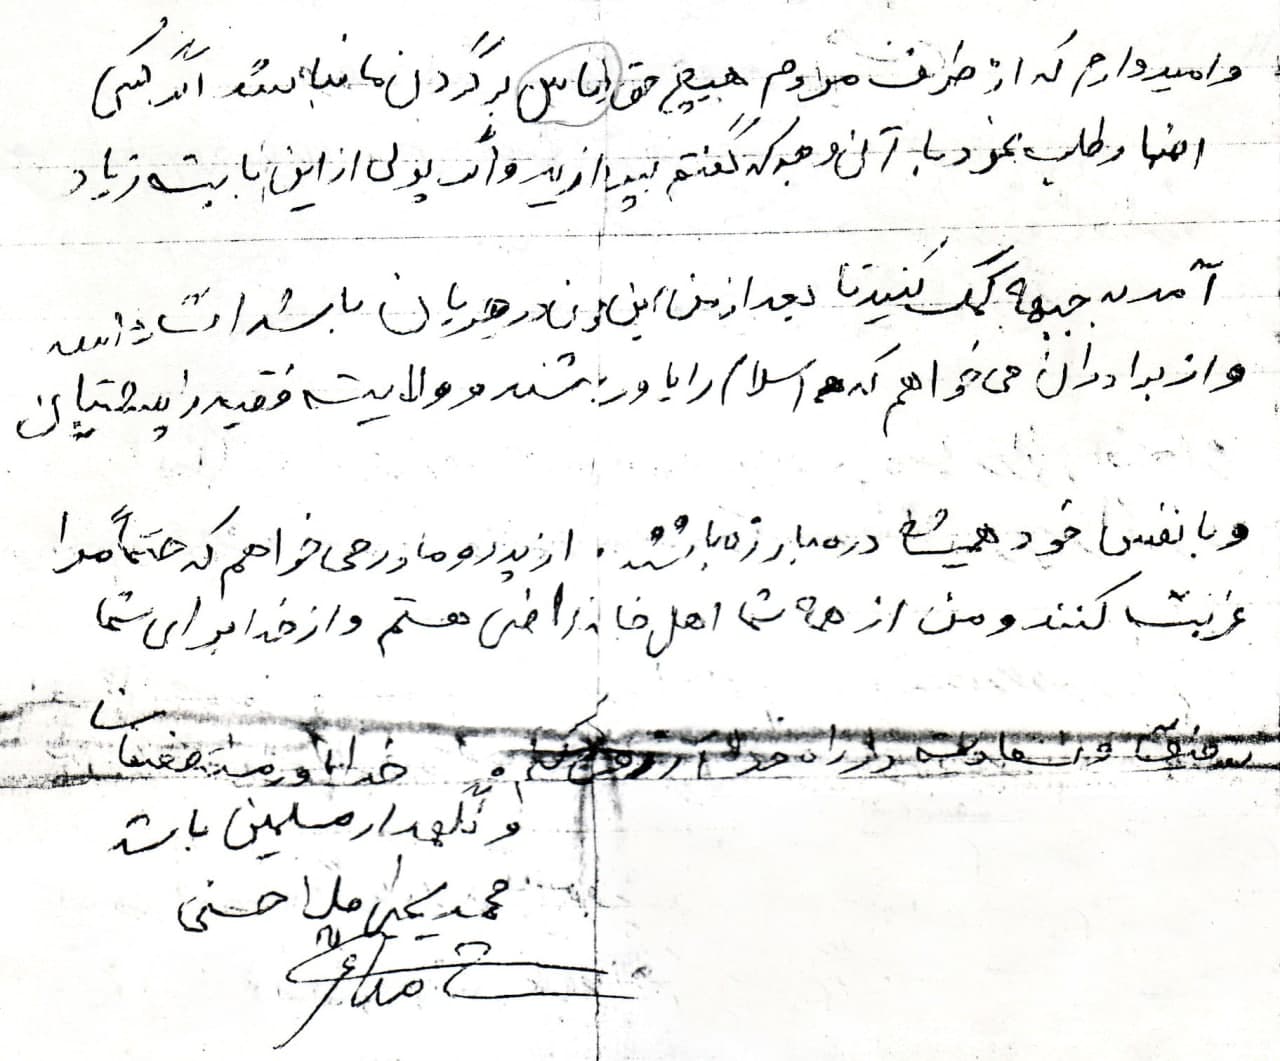 و امیدوارم که از طرف مردم هیچ حق الناس بر گردن ما نباشد اگر کسی
اضهار طلب نمود به آن وجه که گفتم بپردازید و اگر پولی از این بابت زیاد
آمد به جبهه کمک کنید تا بعد از من این در جریان باشد انشاءالله
و از برادران می خواهم که اسلام را یاور باشند و ولایت فقیه را پشتیبان
و با نفس خود همیشه در مبارزه باشند. از پدر و مادر می خواهم که حتماً مرا
کنند و من از همه شما اهل خانه راضی هستم و از خدا برای شما
در راه خدا خدا یاور مستضعفان
و نگهدار مسلمین باشد
محمد یحیی ملا حسنی